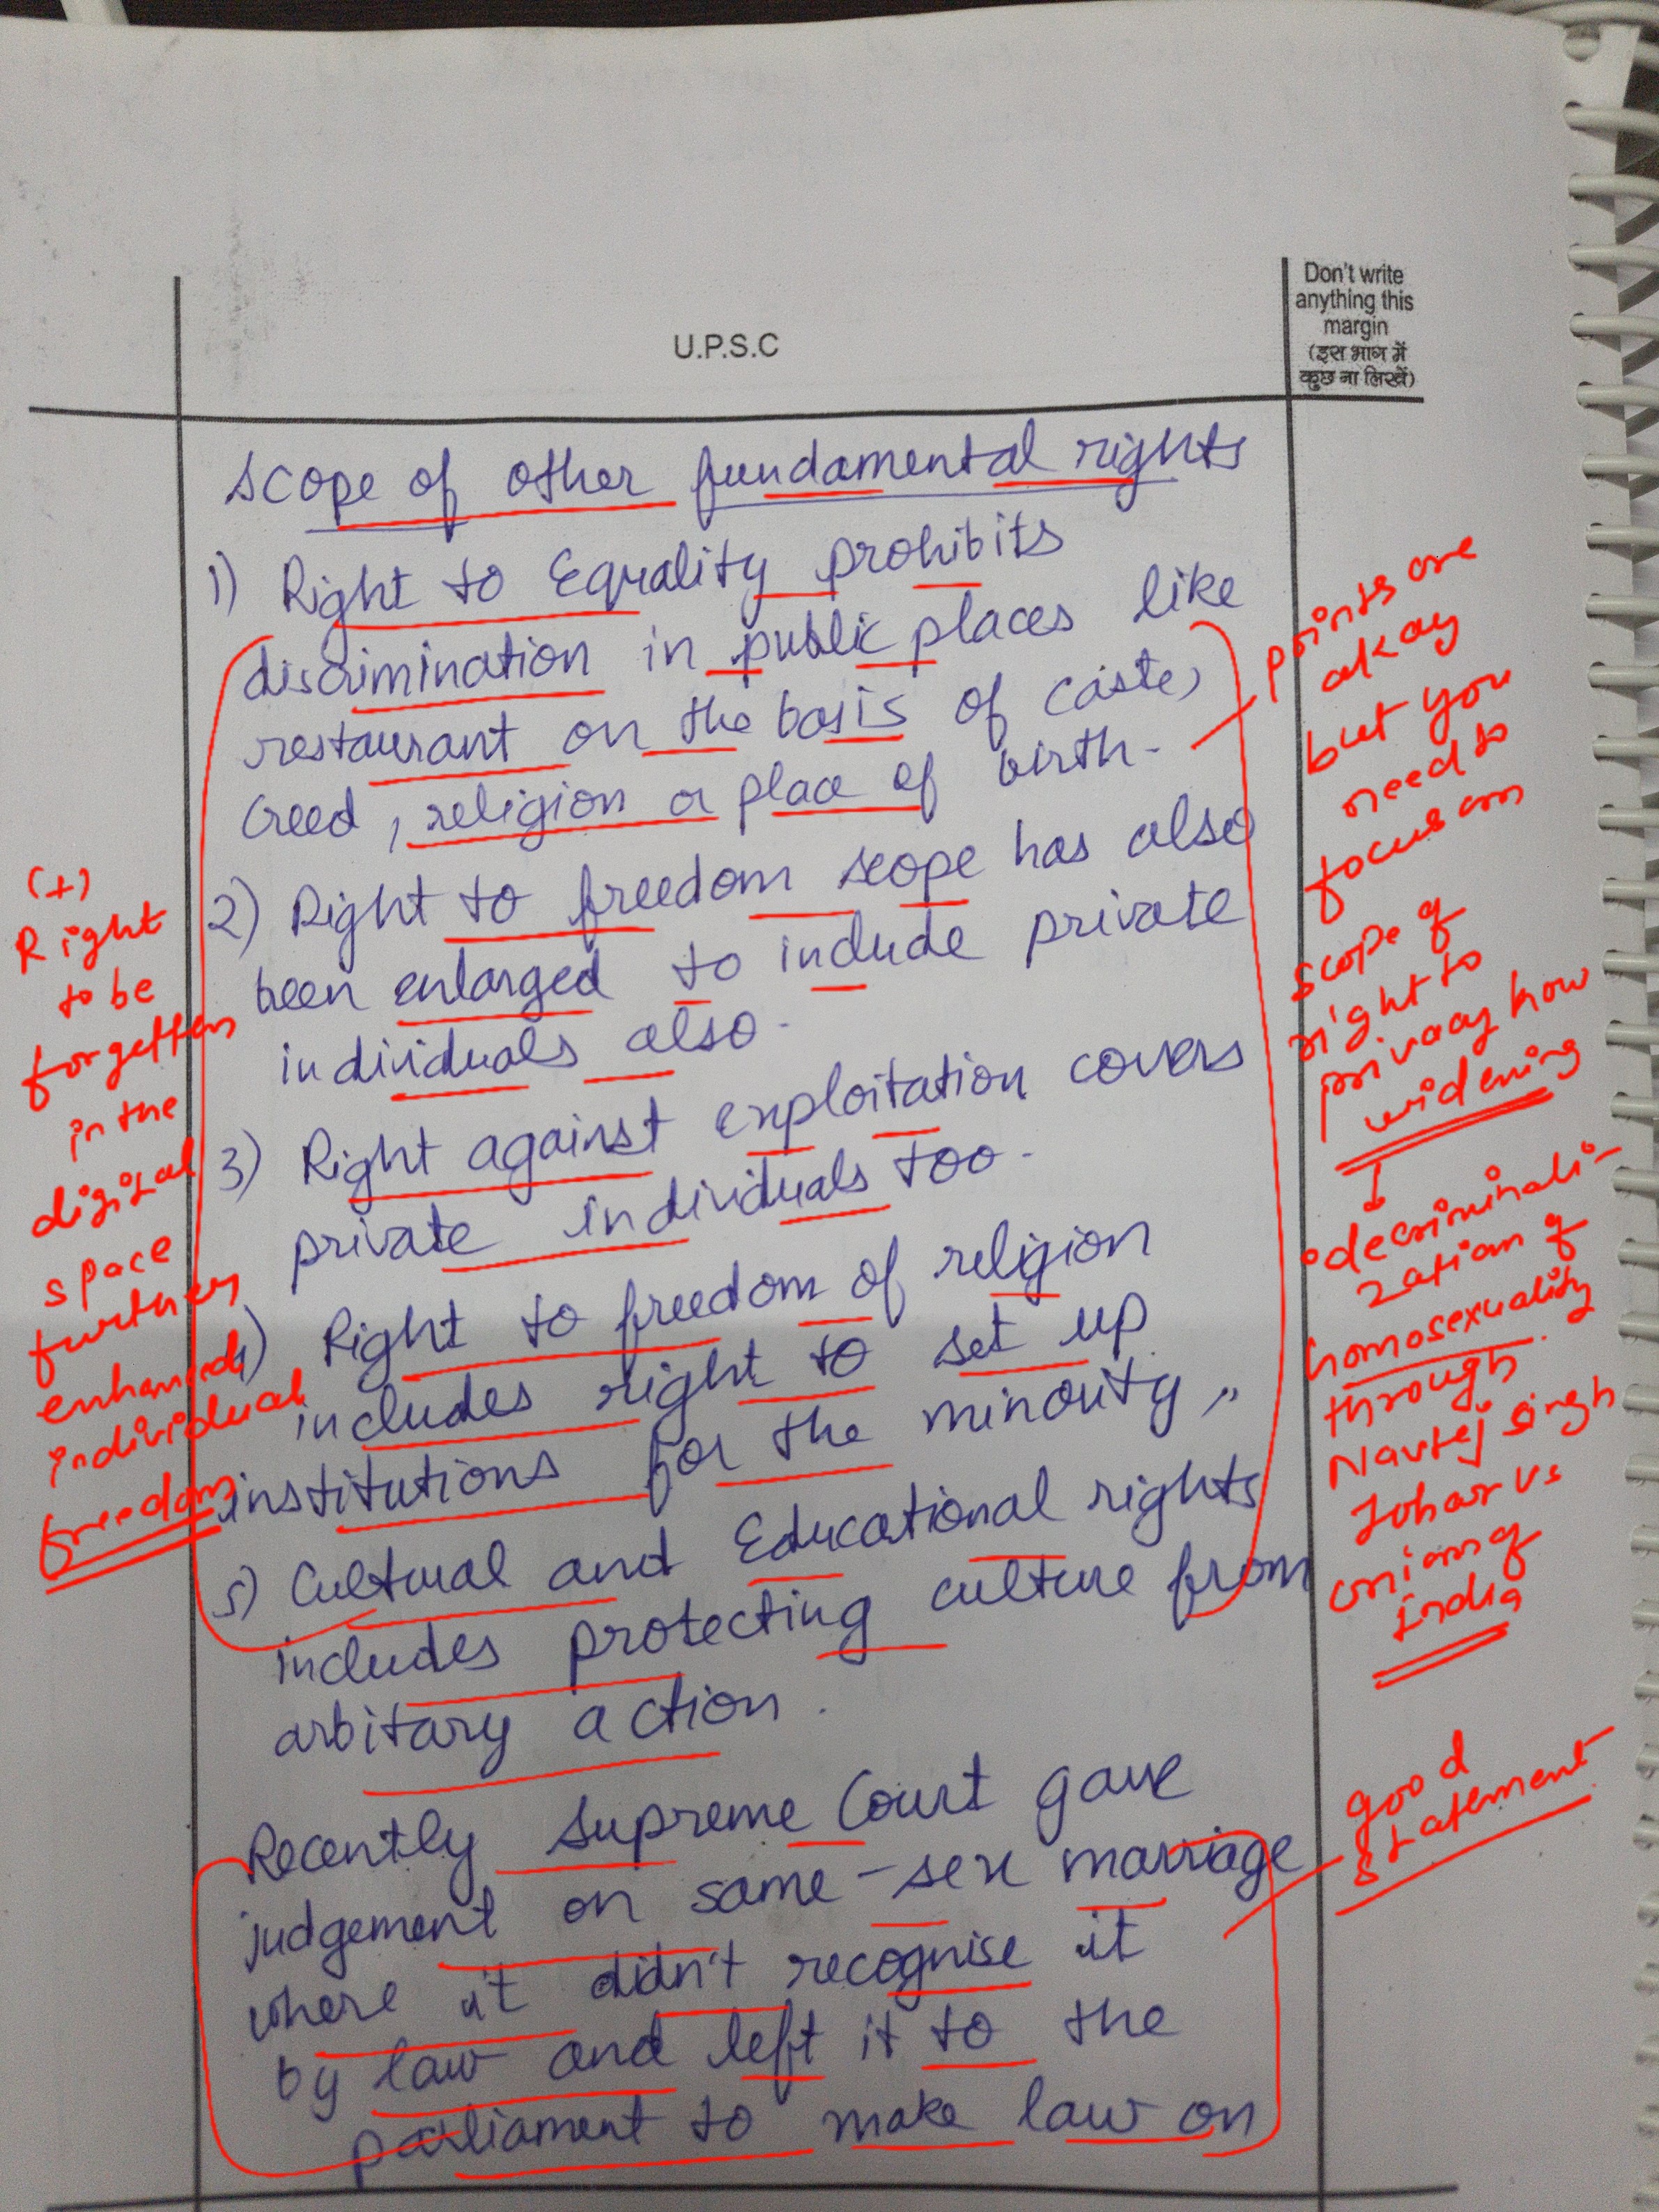 U.P.S.C
Don't write
anything this
margin
(इस भाग में
कुछ ना लिखें)
Scope of other fundamental rights
1) Right to Equality prohibits
discrimination in public places like
restaurant on the basis of caste,
creed, religion or place of birth.
2) Right to freedom scope has also
been enlarged to include private
individuals also.
3) Right against exploitation covers
private individuals too.
4) Right to freedom of religion
includes right to set up
institutions for the minority.
5) Cultural and Educational rights
includes protecting culture from
arbitary action.
Recently Supreme Court gave
judgement on same-sex marriage
where it didn't recognise it
by law and left it to the
parliament to make law on
(+)
Right
to be
forgotten
in the
digital
space
further
enhanced
individual
freedom
points are
okay
but you
need to
focus on
scope of
right to
privacy how
widening
decriminali-
zation of
homosexuality
through
Navtej Singh
Johar vs
union of
India
good
statement